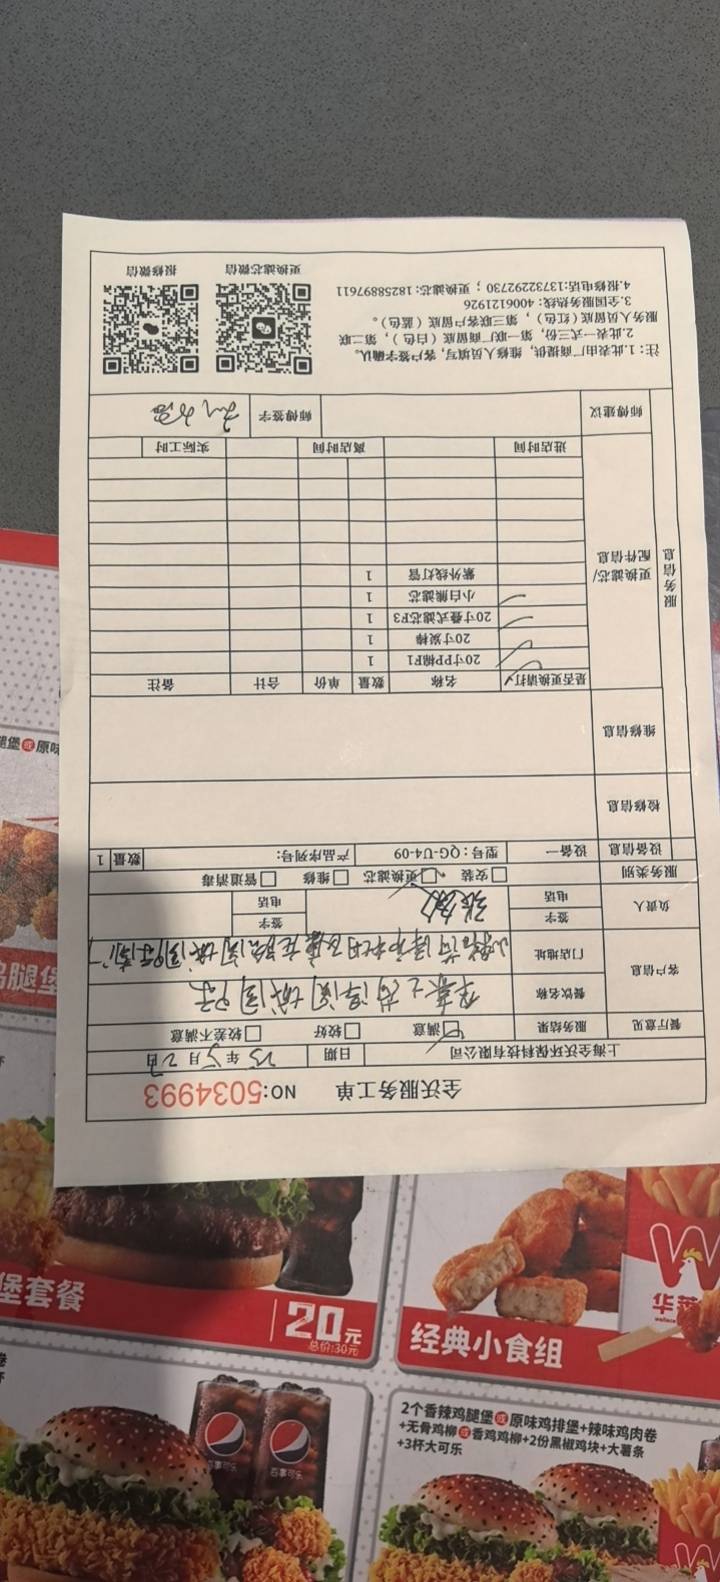 全沃服务工单 NO:5034993
上海全沃环保科技有限公司 日期 25年5月27日
餐厅意见 服务结果 满意 较好 较差不满意
客户信息 餐饮名称
门店地址
负责人 签字 签字
电话 电话
服务类别 安装 更换滤芯 维修 管道消毒
设备信息 设备一 型号：QG-U4-09 产品序列号： 数量 1
检修信息
维修信息
服务信息
更换滤芯/配件信息
是否更换请打✓ 名称 数量 单价 合计 备注
✓ 20寸PP棉F1 1
✓ 20寸炭棒 1
✓ 20寸叠式滤芯F3 1
✓ 小白熊滤芯 1
紫外线灯管 1
进店时间 离店时间 实际工时
师傅建议 师傅签字
注：1.此表由厂商提供，维修人员填写，客户签字确认。
2.此表一式三份，第一联厂商留底（白色），第二联
服务人员留底（红色），第三联客户留底（蓝色）。
3.全国服务热线：4006121926
4.报修电话:13732292730；更换滤芯：18258897611
更换滤芯微信 报修微信
腿堡或原味
鸡腿堡
堡套餐
20元
总价:30元
经典小食组
华莱
2个香辣鸡腿堡或原味鸡排堡+辣味鸡肉卷
+无骨鸡柳或香鸡鸡柳+2份黑椒鸡块+大薯条
+3杯大可乐
百事可乐
百事可乐